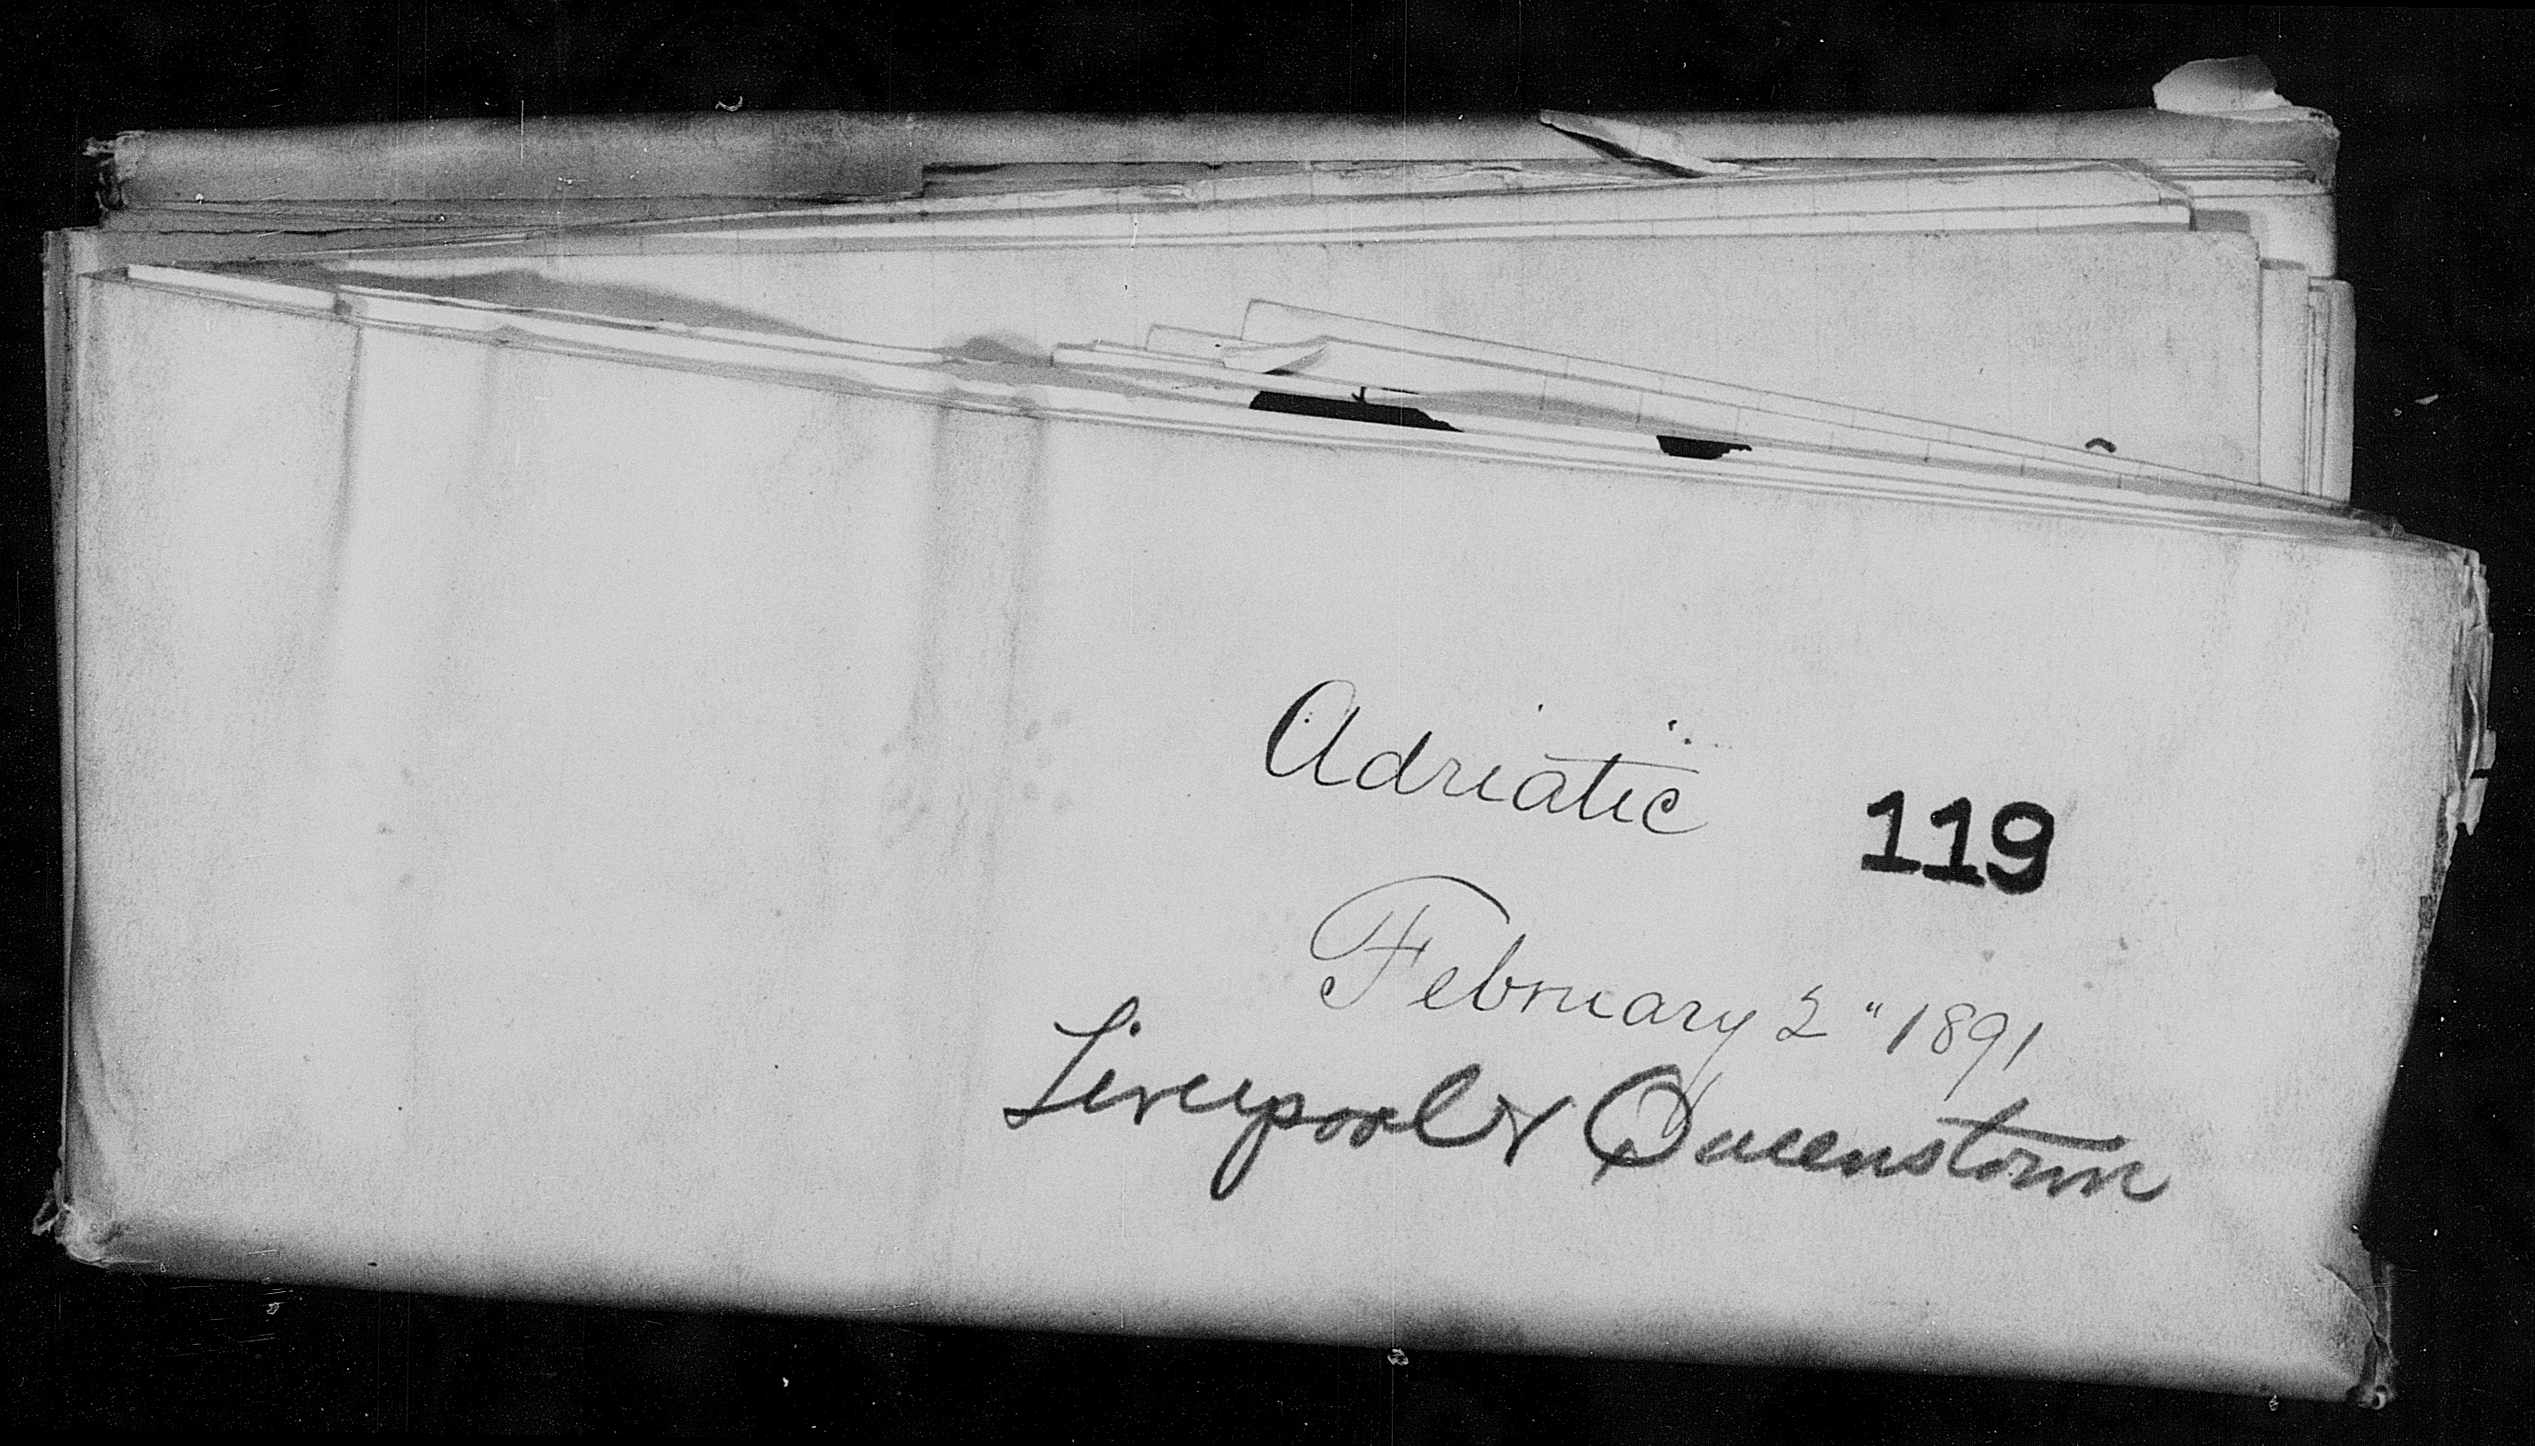 Adriatic
119
February 2" 1891
Liverpool & Queenstown